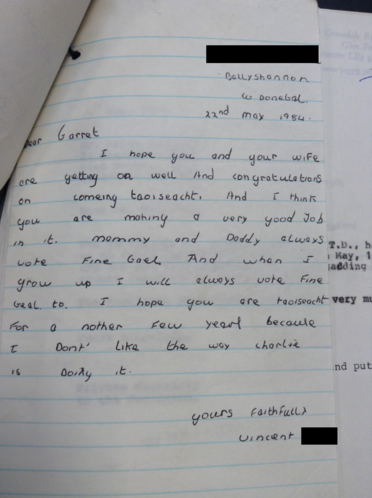 Ballyshannon
Co Donegal
22nd May 1984
Dear Garret
I hope you and your wife
are getting on well And congratulations
on comeing taoiseacht. And I think
you are making a very good Job
in it. mommy and Daddy always
vote Fine Gael And when I
grow up I will always vote Fine
Gael to. I hope you are taoiseacht
For a nother Few years because
I Dont' like the way charlie
is Doify it.
yours Faithfully
Vincent
T.D., h
May, 1
adding
very mu
nd put